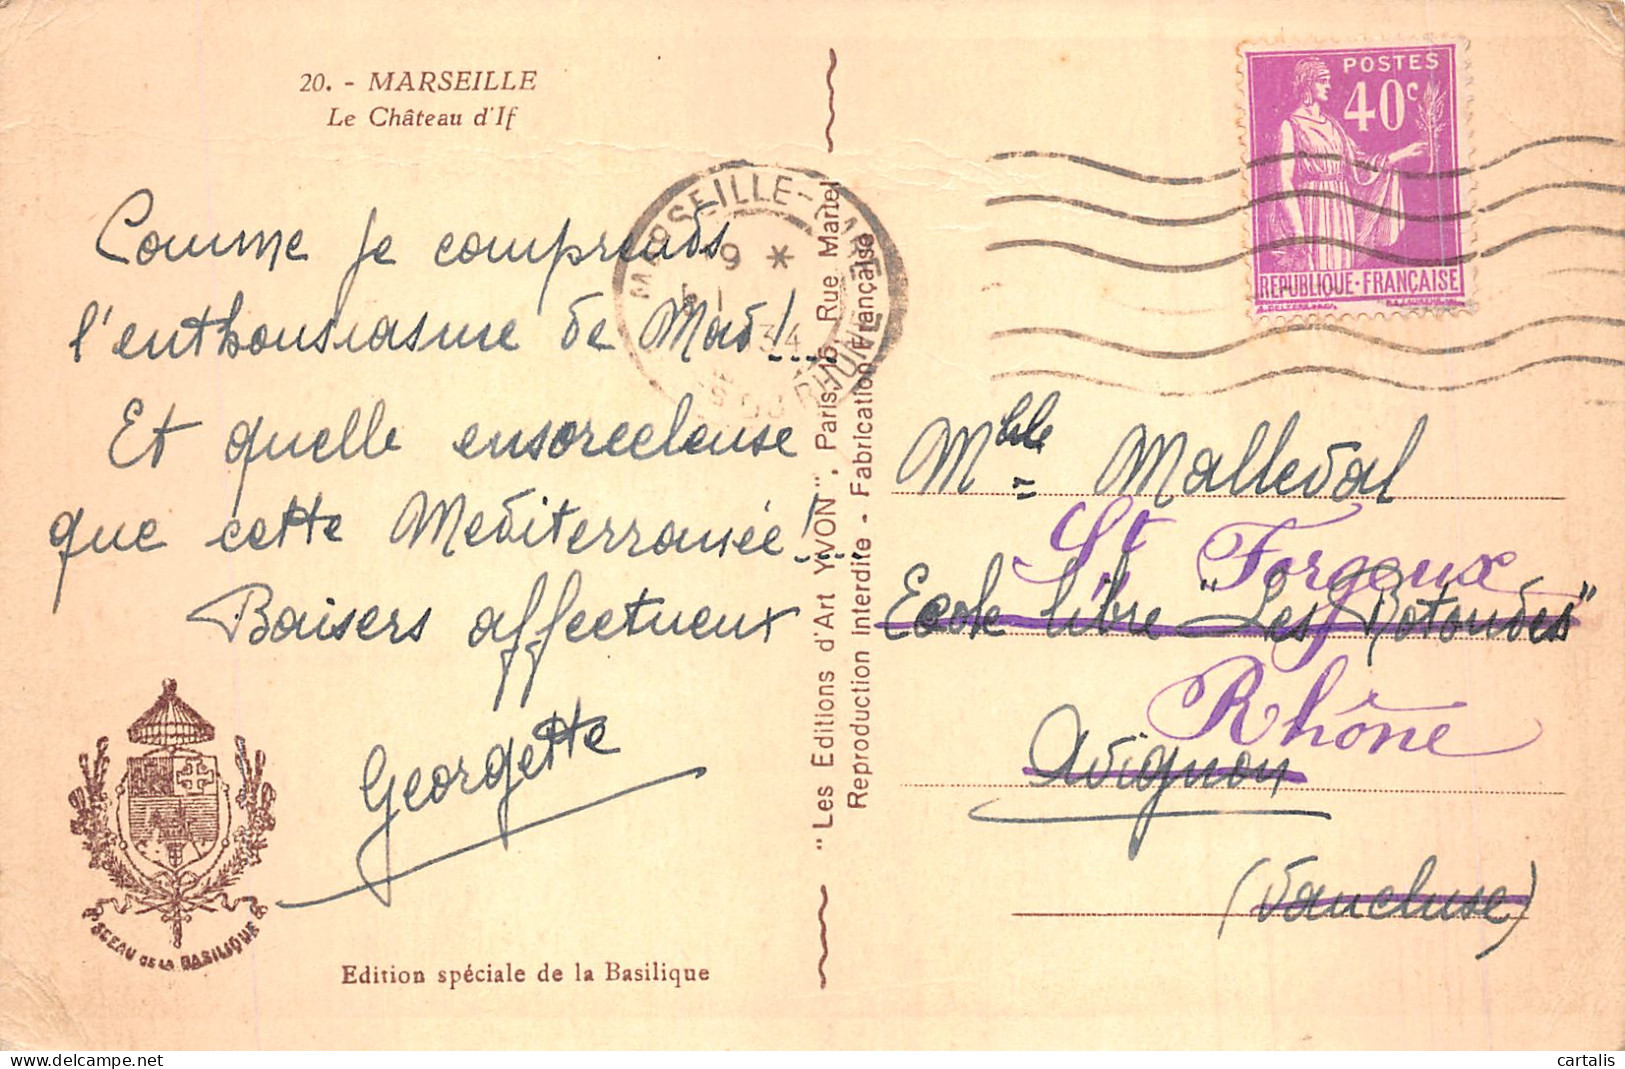 20. - MARSEILLE
Le Château d'If
Comme je comprends
l'enthousiasme de Mad!...
Et quelle ensorceleuse
que cette Méditerranée!...
Baisers affectueux
Georgette
SCEAU DE LA BASILIQUE
Edition spéciale de la Basilique
"Les Editions d'Art YVON", Paris, 15, Rue Martel
Reproduction Interdite - Fabrication Française
MARSEILLE-GARE
9 *
34
DU RHONE
POSTES
40c
REPUBLIQUE-FRANÇAISE
Mlle Malleval
St Forgeux
Ecole libre "Les Rotondes"
Rhône
Avignon
(Vaucluse)
cartalis